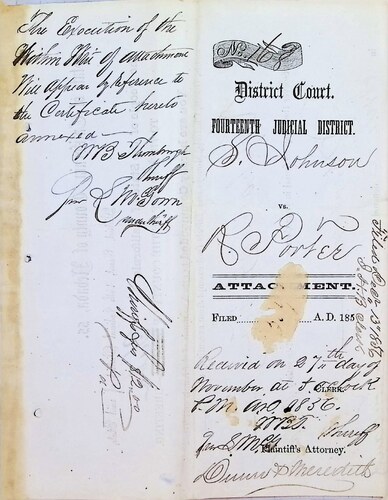 The Execution of the
Within Writ of attachment
Will Appear by reference to
the Certificate hereto
annexed
WB Thornburgh
Sheriff
Per L McGown
under Sheriff
Sheriffs fees $2.00
No 168
District Court.
FOURTEENTH JUDICIAL DISTRICT.
S. Johnson
vs.
R Porter
ATTACHMENT.
FILED A.D. 185
CLERK.
Received on 27th day of
November at 5 o'clock
P.M. A.D. 1856.
W.B.T. Sheriff
Plaintiff's Attorney.
Dunn & Meredith